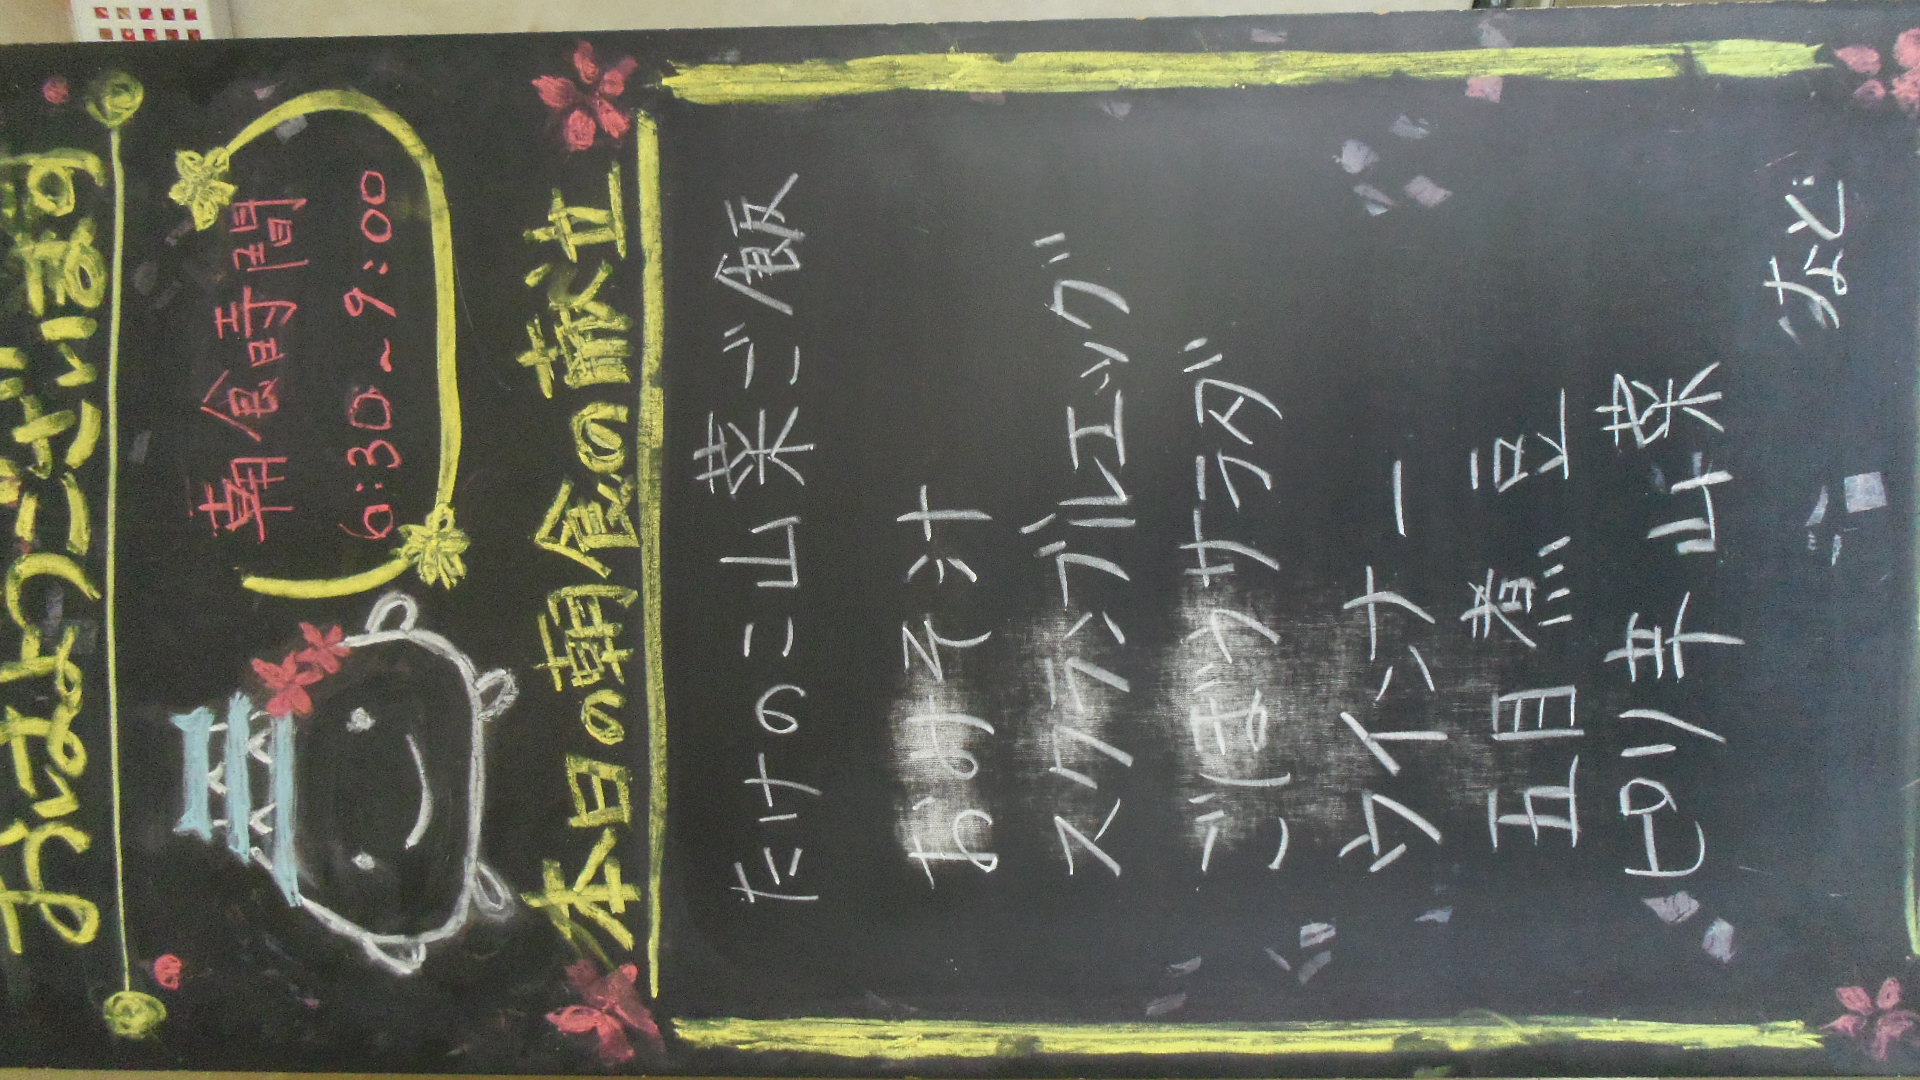 おはようございます
朝食時間
6:30~9:00
本日の朝食の献立
たけのこ山菜ご飯
おみそ汁
スクランブルエッグ
ごぼうサラダ
ウインナー
五目煮豆
ピリ辛山菜
など